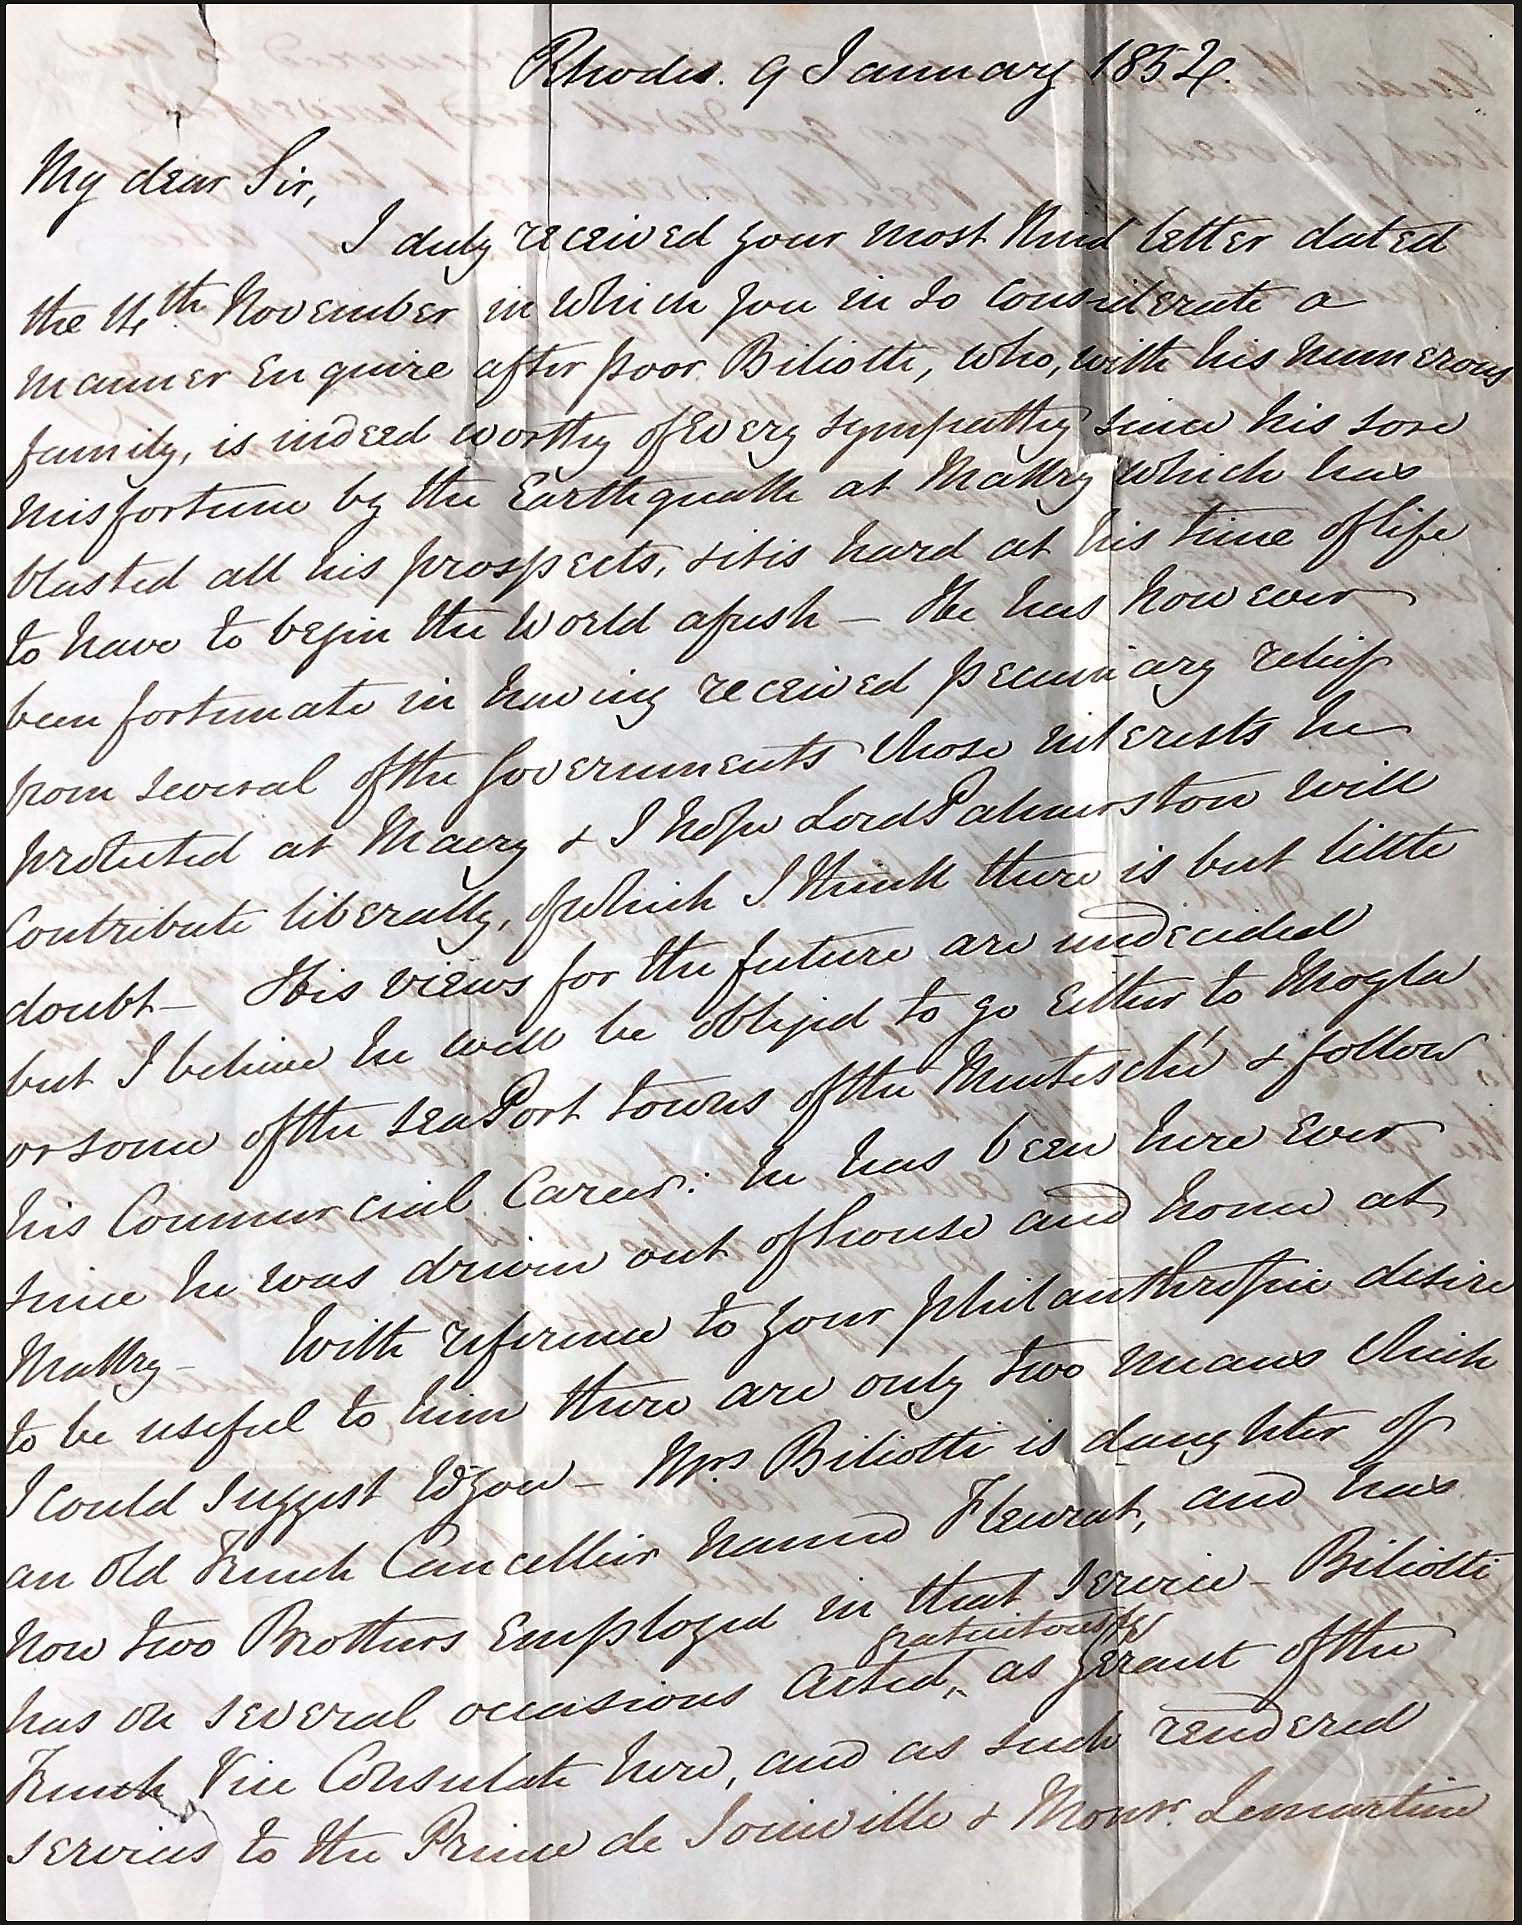 Rhodes. 9 January 1852.
My dear Sir,
I duly received your most kind letter dated
the 4th November in which you in so considerate a
manner enquire after poor Biliotti, who, with his numerous
family, is indeed worthy of every sympathy since his sore
misfortune by the Earthquake at Makry which has
blasted all his prospects, & it is hard at his time of life
to have to begin the World afresh — He has however
been fortunate in having received pecuniary relief
from several of the Governments whose interests he
protected at Macry & I hope Lord Palmerston will
contribute liberally, of which I think there is but little
doubt — His views for the future are undecided
but I believe he will be obliged to go either to Mogla
or some of the sea Port towns of the Menteschè & follow
his Commercial Career: he has been here ever
since he was driven out of house and home at
Makry — With reference to your philanthropic desire
to be useful to him there are only two means which
I could suggest to you — Mrs Biliotti is daughter of
an old French Cancellier named Fleurat, and has
now two Brothers employed in that service — Biliotti
has on several occasions acted, gratuitously as gerant of the
French Vice Consulate here, and as such rendered
services to the Prince de Joinville & Monsr. Lemartine